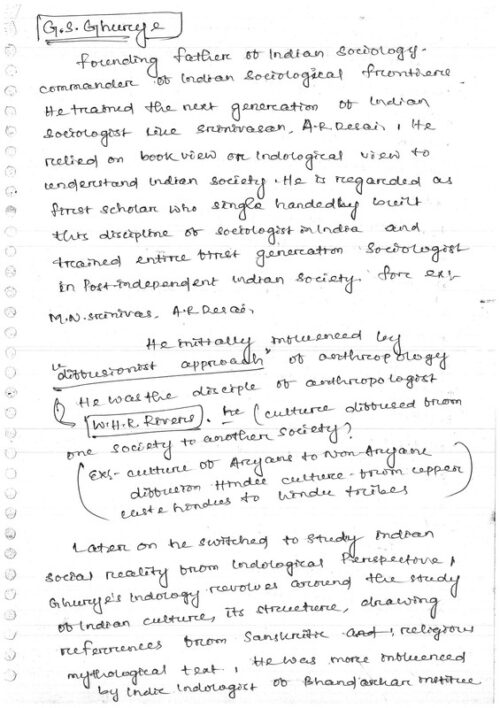 G.S. Ghurye
founding father of Indian Sociology.
commander of Indian Sociological frontiers
He trained the next generation of Indian
Sociologist like Srinivasan, A.R Desai, He
relied on book view or Indological view to
understand Indian society. He is regarded as
first scholar who single handedly built
this discipline of sociologist in India and
trained entire first generation Sociologist
in Post-independent Indian Society. for ex:-
M.N. Srinivas, A.R Desai,
He initially influenced by
"diffusionist approach" of anthropology
He was the disciple of anthropologist
W.H.R. Rivers. he (culture diffused from
one society to another society?
(Ex:- culture of Aryans to Non-Aryans
diffusion Hindu culture from upper
caste hindus to hindu tribes)
Later on he switched to study Indian
social reality from Indological Perspective,
Ghurye's Indology revolves around the study
of Indian culture, its structure, drawing
references from Sanskritic and, religious
mythological text, He was more influenced
by Indic Indologist of Bhandarkar institute